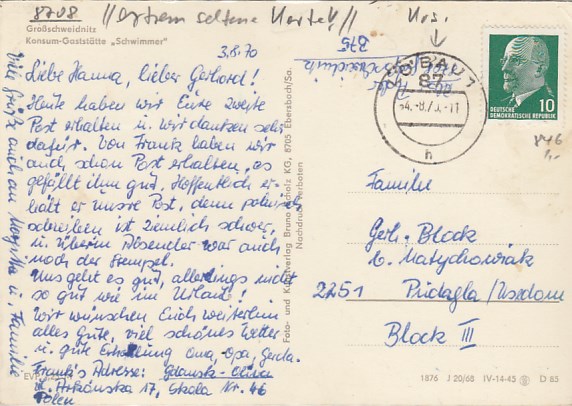 8708 //extrem seltene Karte!!//
Großschweidnitz
Konsum-Gaststätte „Schwimmer“
3.8.70
Liebe Hanna, lieber Gerhard!
Heute haben wir Eure zweite
Post erhalten u. wir danken sehr
dafür. Von Frank haben wir
auch schon Post erhalten, es
gefällt ihm gut. Hoffentlich er-
hält er unsre Post, denn polnisch
schreiben ist ziemlich schwer,
u. überm Absender war auch
noch der Stempel.
Uns geht es gut, allerdings nicht
so gut wie im Urlaub!
Wir wünschen Euch weiterhin
alles Gute, viel schönes Wetter
u. gute Erholung Oma, Opa, Gerda.
Frank's Adresse: Gdansk-Oliva
Skola Nr. 46
Polen
Viele Grüße auch an
u. Familie
Foto- und Kunstverlag Bruno Scholz KG, 8705 Ebersbach/Sa.
Nachdruck verboten
875
LÖBAU 1
87
h
DEUTSCHE
DEMOKRATISCHE REPUBLIK
10
846
Familie
Gerh. Block
b. Matychowiak
2251 Pudagla/Usedom
Block III
1876 J 20/68 IV-14-45 D 85